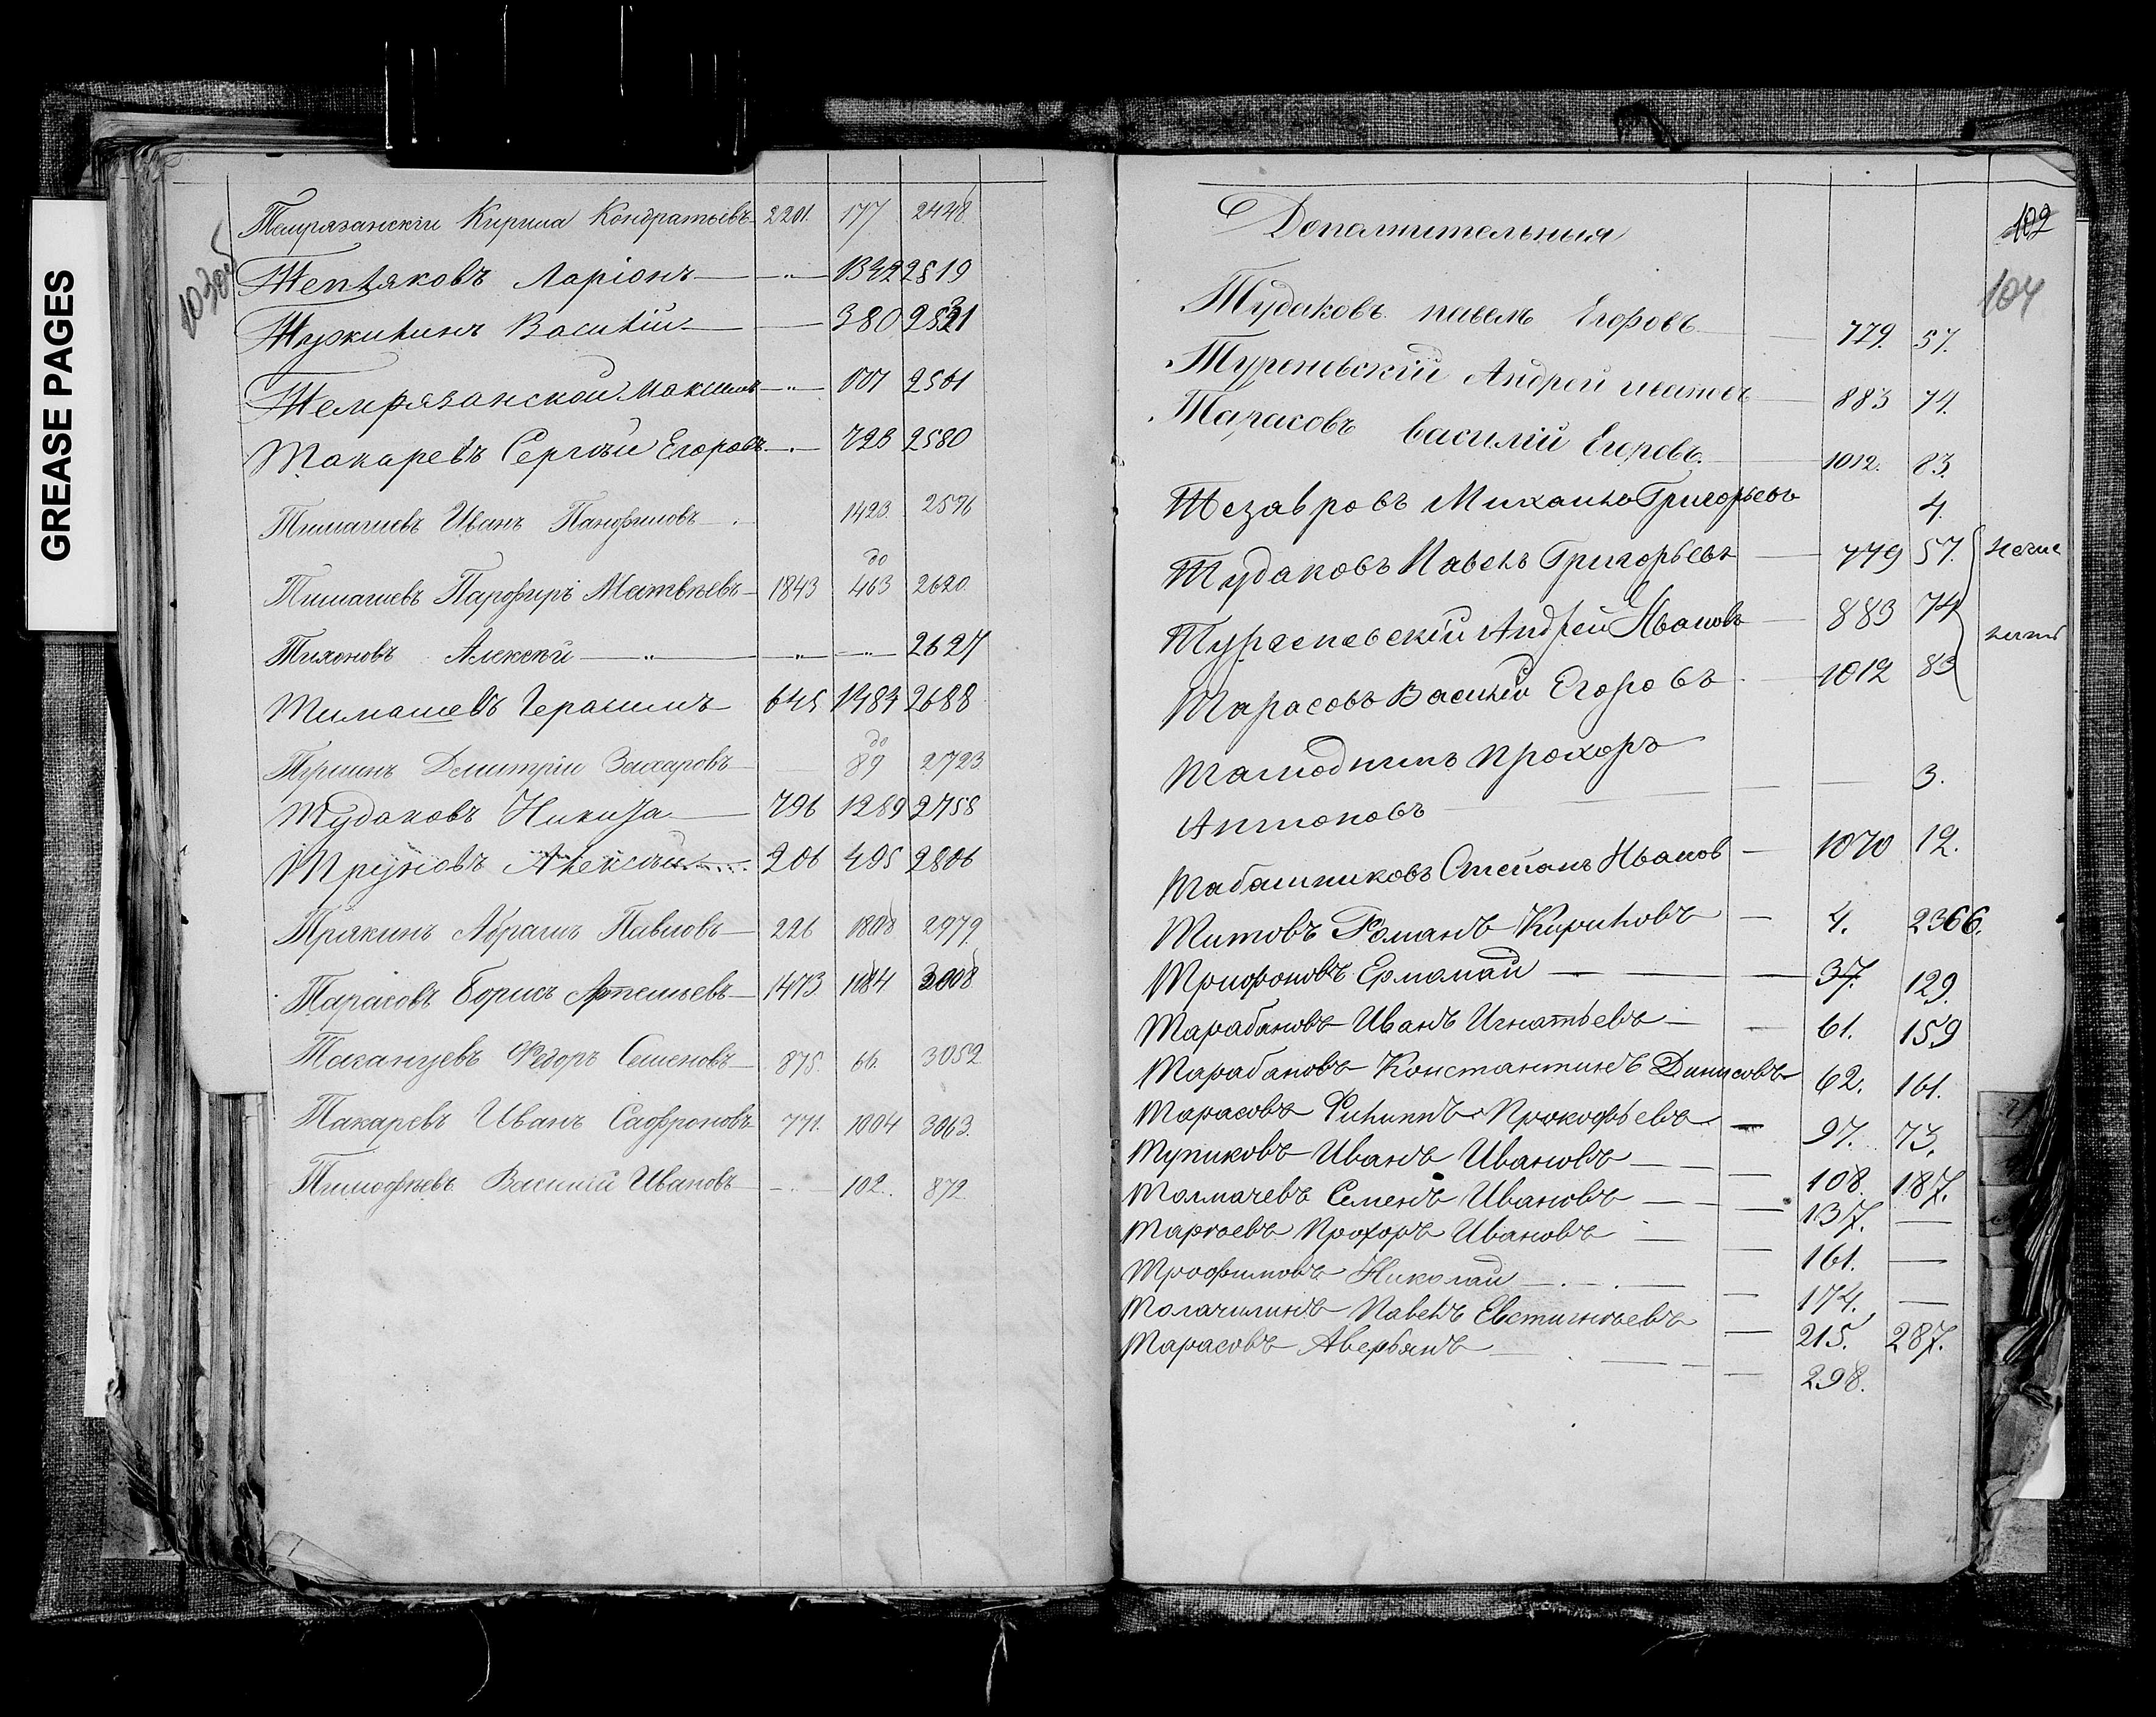 GREASE PAGES
103об
Темрязанскій Кирила Кондратьевъ 2201. 177 2448.
Тепляковъ Ларіонъ — „ — 1342 2519
Тужилинъ Василій — 380 2531
Темрязанской Максимъ — „ — 2561
Токаревъ Сергѣй Егоровъ — „ — 723 2580
Тимашевъ Иванъ Панфиловъ 1423. 2576
до
Тимашевъ Парфиръ Матвѣевъ — 1843 463 2620.
Тихоновъ Алексѣй — „ — „ — „ — 2627
Тимашевъ Герасимъ 645 1484 2688
до
Туршинъ Димитрій Захаровъ 89 2723
Тудаковъ Никита — 796 1289 2758
Труновъ Алексѣй 206 495 2806
Трякинъ Абрамъ Павловъ — 226 1808 2979.
Тарасовъ Борисъ Артемьевъ — 1473. 1084 3008
Таганцевъ Федоръ Семеновъ — 875. 66. 3052
Токаревъ Иванъ Сафроновъ 771. 1004 3063.
Тимофѣевъ Василій Ивановъ — 102. 872.
102
104
Дополнительныя
Тудаковъ павелъ Егоровъ — 779. 57.
Турсневскій Андрей ивановъ 883 74.
Тарасовъ василій Егоровъ. — 1012. 83.
Тезавровъ Михаилъ Григорьевъ 4.
Тудаковъ Павелъ Григорьевъ — 779 57.
Турсневскій Андрей Ивановъ — 883 74
Тарасовъ Василій Егоровъ — 1012 83
Прохоръ
Антоновъ — 3.
Табашниковъ Степанъ Иванов — 1070 12.
Титовъ Романъ Кириловъ — 4. 2366.
Трифоновъ Ермолай — 37. 129.
Тарабановъ Иванъ Игнатьевъ — 61. 159
Тарабановъ Константинъ Динисовъ 62. 161.
Тарасовъ Филиппъ Прокофьевъ — 97. 73.
Тупиковъ Иванъ Ивановъ — 108. 187.
Толмачевъ Семенъ Ивановъ — 137. —
Тартаевъ Прохоръ Ивановъ — 161. —
Трофимовъ Николай — 174. —
Толачилинъ Павелъ Евстигнѣевъ — 215. 287.
Тарасовъ Аверьянъ — 298.